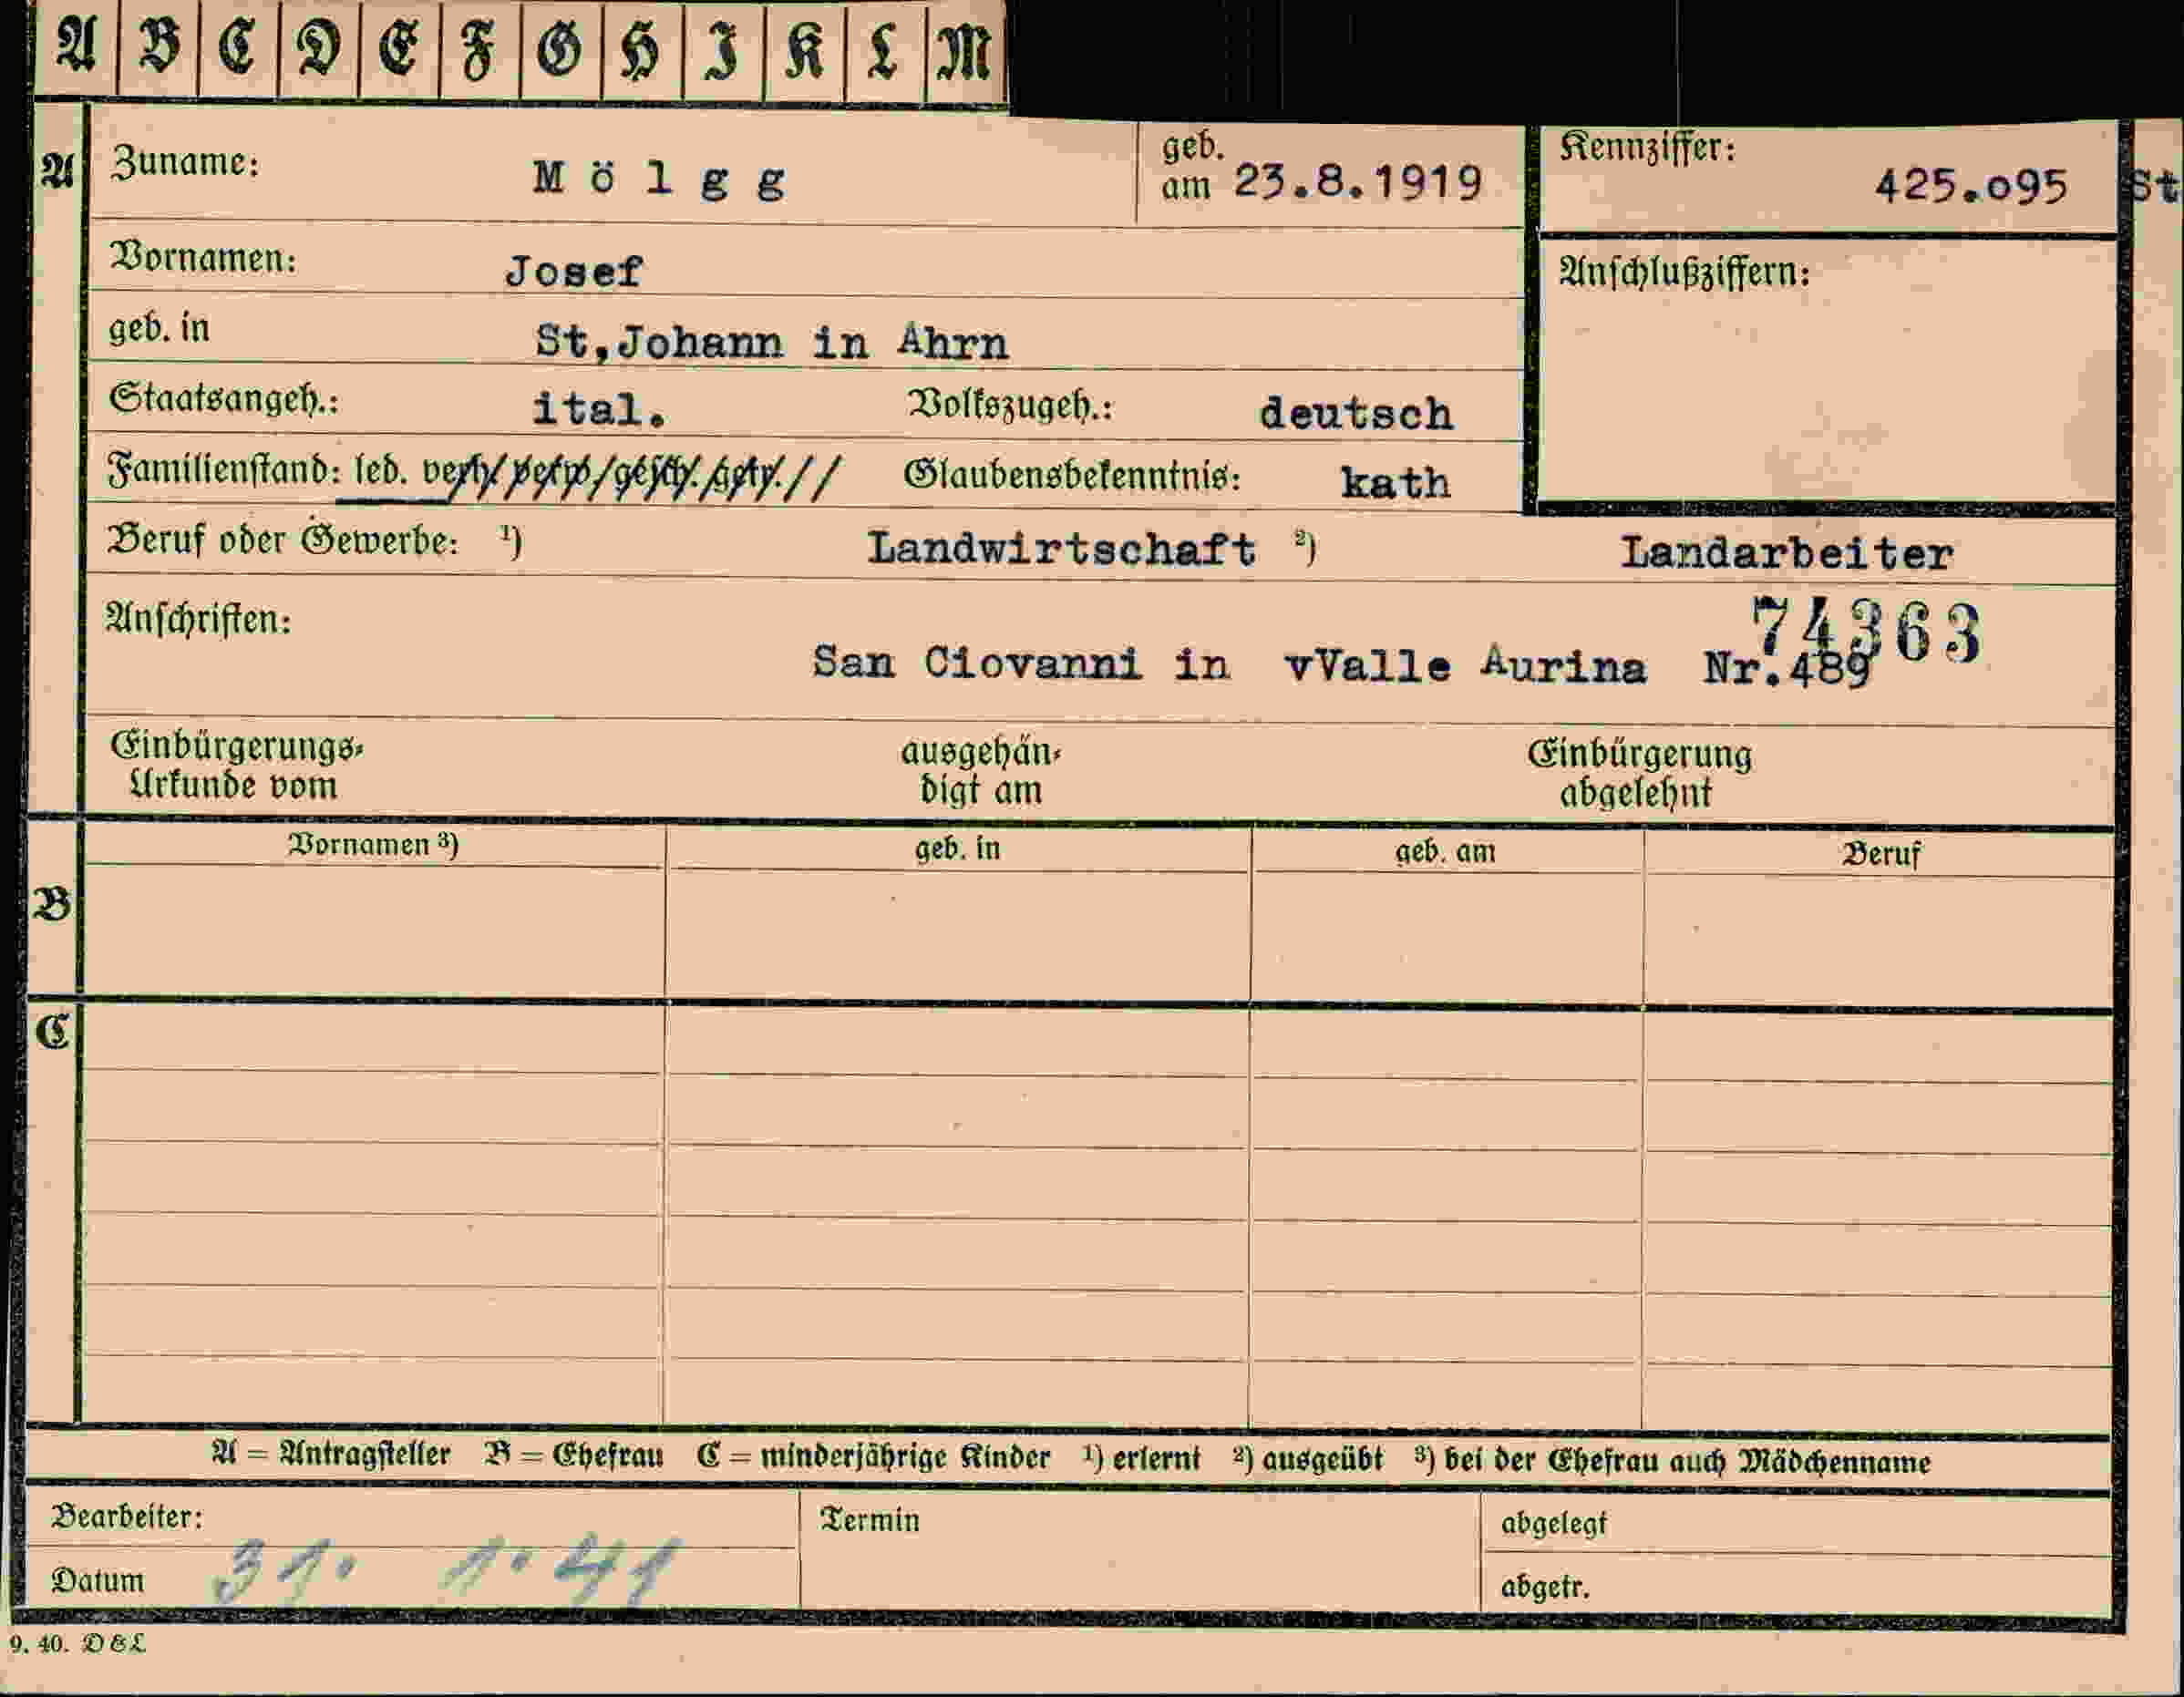 A B C D E F G H I K L M
A Zuname: Mölgg geb. am 23.8.1919 Kennziffer: 425.o95 St
Vornamen: Josef Anschlußziffern:
geb. in St,Johann in Ahrn
Staatsangeh.: ital. Volkszugeh.: deutsch
Familienstand: led. verh. verw. gesch. getr. Glaubensbekenntnis: kath
Beruf oder Gewerbe: 1) Landwirtschaft 2) Landarbeiter
Anschriften: 74363
San Ciovanni in vValle Aurina Nr.489
Einbürgerungs- ausgehän- Einbürgerung
Urkunde vom digt am abgelehnt
Vornamen 3) geb. in geb. am Beruf
B
C
A = Antragsteller B = Ehefrau C = minderjährige Kinder 1) erlernt 2) ausgeübt 3) bei der Ehefrau auch Mädchenname
Bearbeiter: Termin abgelegt
Datum 31. 1. 41 abgetr.
9. 40. D&L